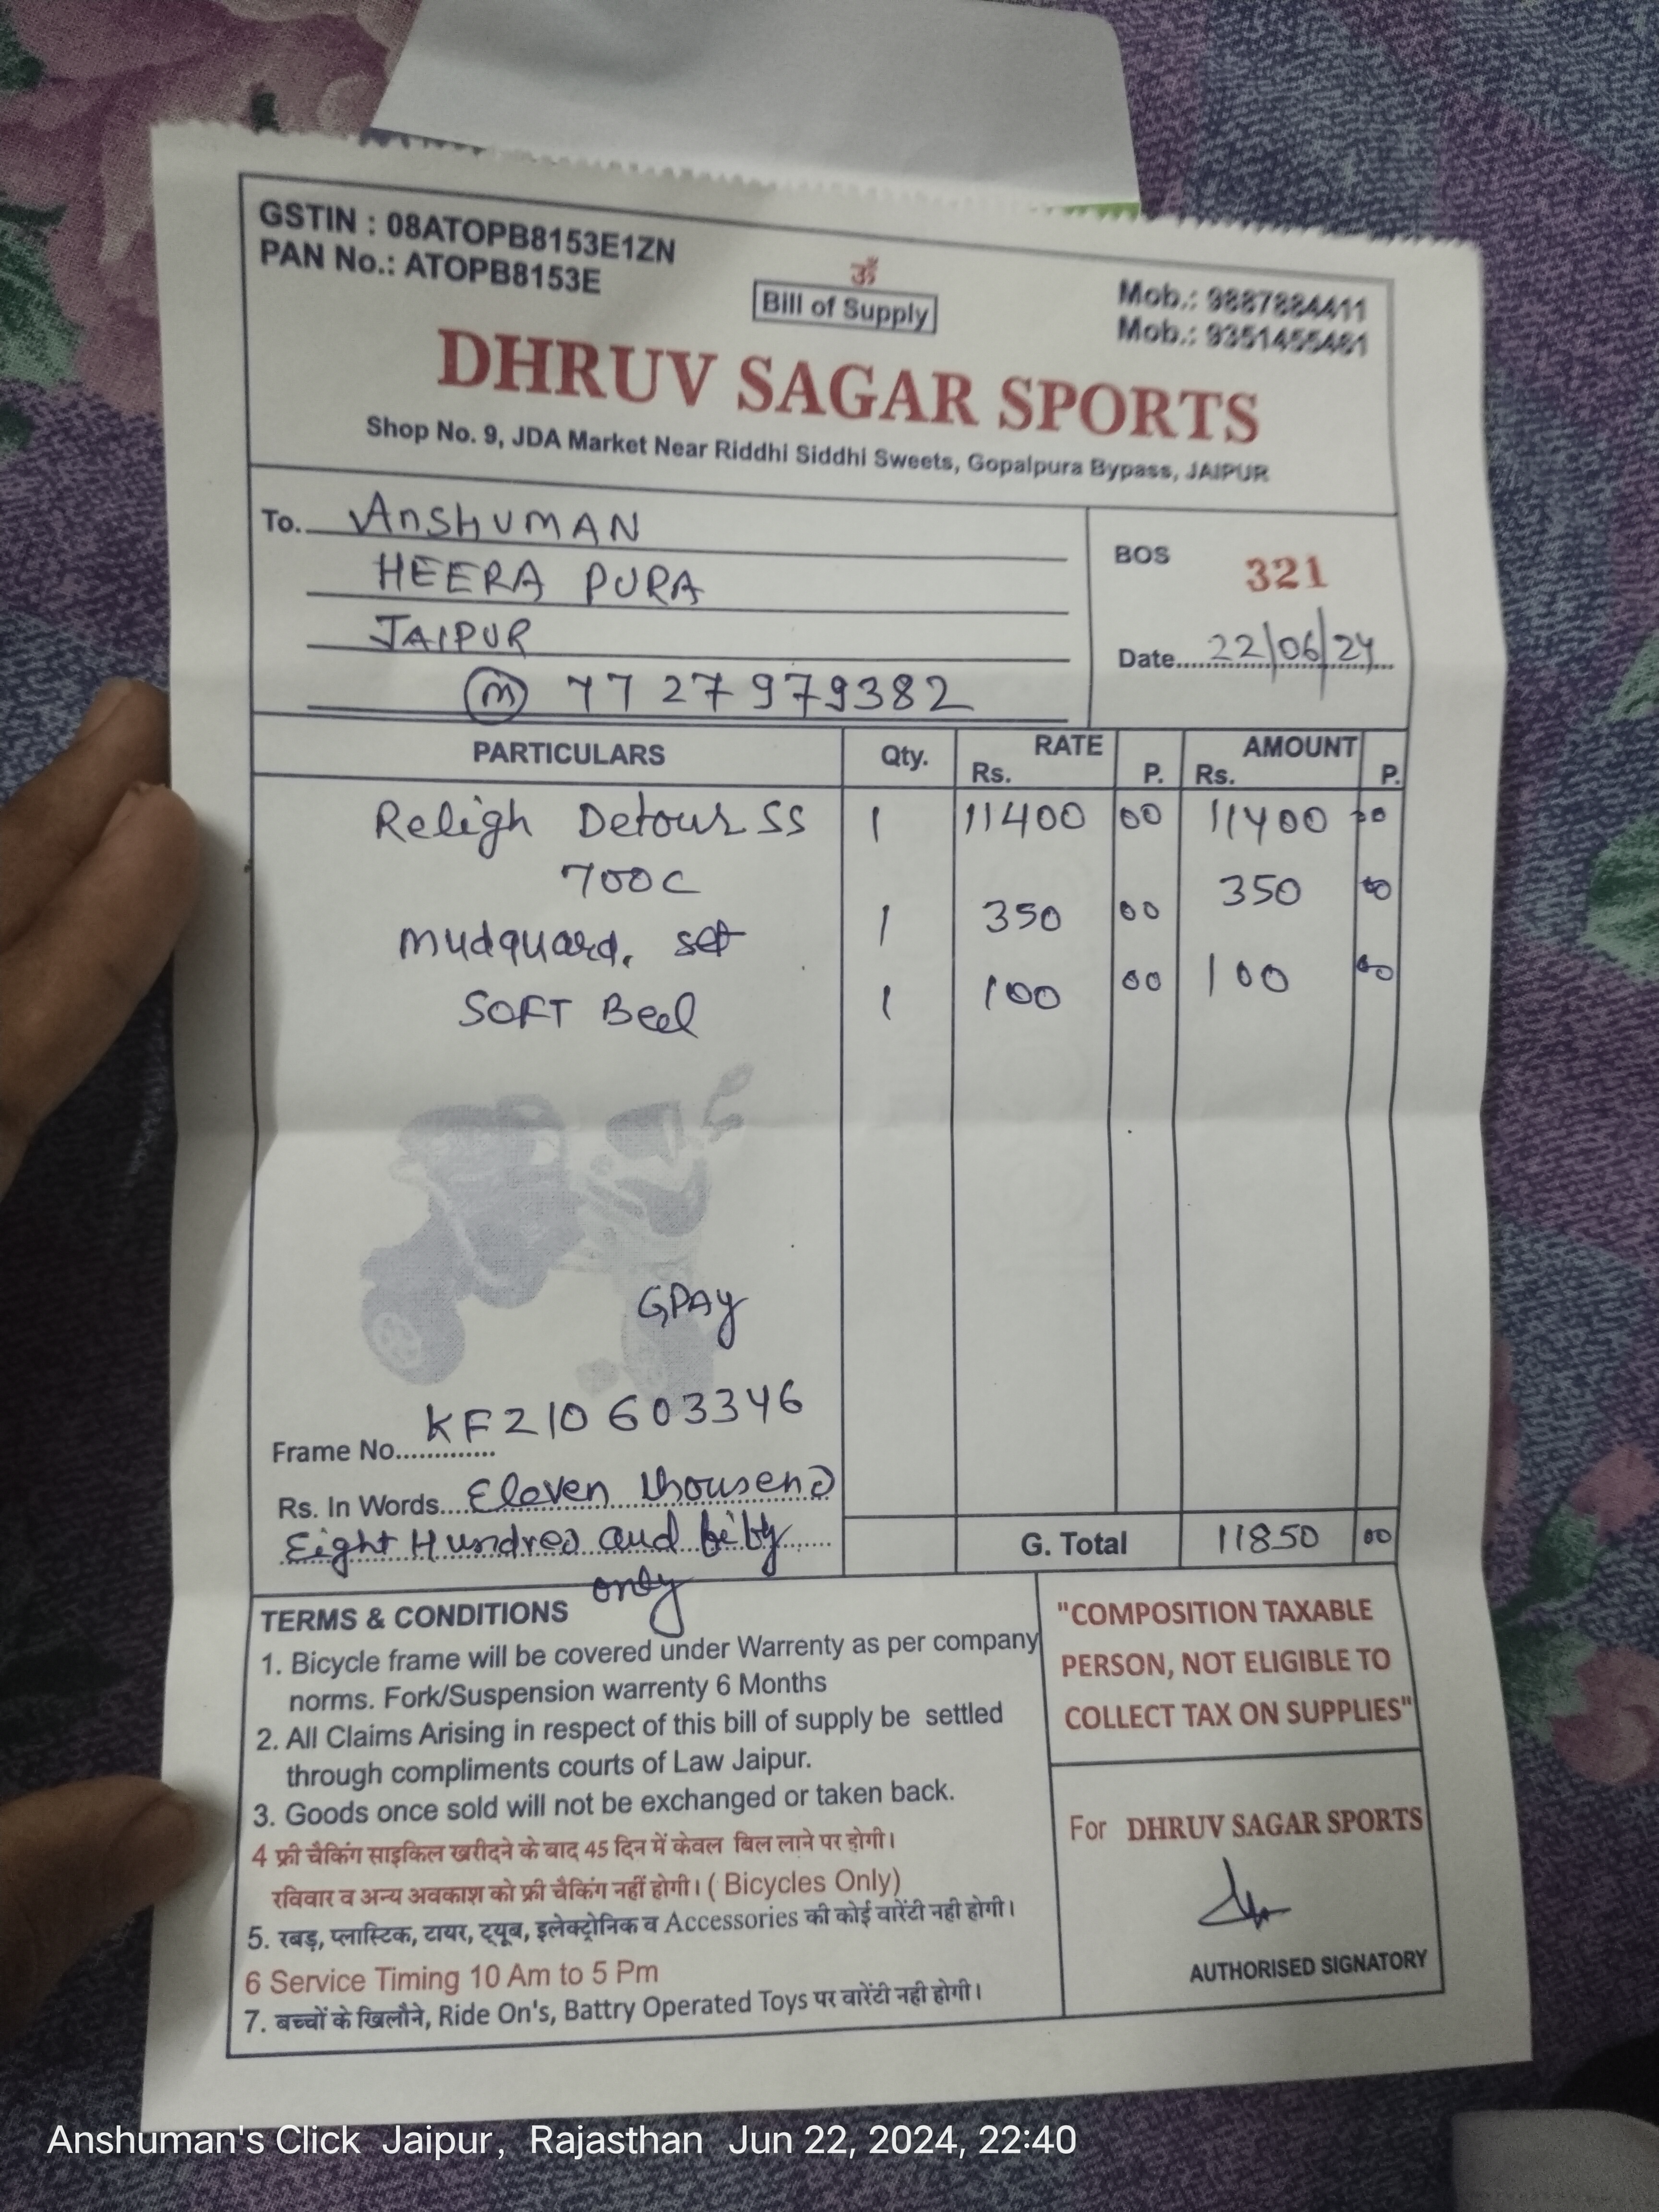 GSTIN : 08ATOPB8153E1ZN
PAN No.: ATOPB8153E
ॐ
Bill of Supply
Mob.: 9887884411
Mob.: 9351455461
DHRUV SAGAR SPORTS
Shop No. 9, JDA Market Near Riddhi Siddhi Sweets, Gopalpura Bypass, JAIPUR
To. AnSHUMAN
HEERA PURA
JAIPUR
(m) 7727979382
BOS 321
Date 22/06/24
PARTICULARS Qty. RATE Rs. P. AMOUNT Rs. P.
Religh Detour SS 1 11400 00 11400 00
700C
mudquard. set 1 350 00 350 00
SOFT Beel 1 100 00 100 00
GPAY
Frame No. KF210603346
Rs. In Words Eleven thousend
Eight Hundred and fifty
only
G. Total 11850 00
TERMS & CONDITIONS
1. Bicycle frame will be covered under Warrenty as per company
norms. Fork/Suspension warrenty 6 Months
2. All Claims Arising in respect of this bill of supply be settled
through compliments courts of Law Jaipur.
3. Goods once sold will not be exchanged or taken back.
4 फ्री चैकिंग साइकिल खरीदने के बाद 45 दिन में केवल बिल लाने पर होगी।
रविवार व अन्य अवकाश को फ्री चैकिंग नहीं होगी। ( Bicycles Only)
5. रबड़, प्लास्टिक, टायर, ट्यूब, इलेक्ट्रोनिक व Accessories की कोई वारेंटी नही होगी।
6 Service Timing 10 Am to 5 Pm
7. बच्चों के खिलौने, Ride On's, Battry Operated Toys पर वारेंटी नही होगी।
"COMPOSITION TAXABLE
PERSON, NOT ELIGIBLE TO
COLLECT TAX ON SUPPLIES"
For DHRUV SAGAR SPORTS
AUTHORISED SIGNATORY
Anshuman's Click Jaipur, Rajasthan Jun 22, 2024, 22:40